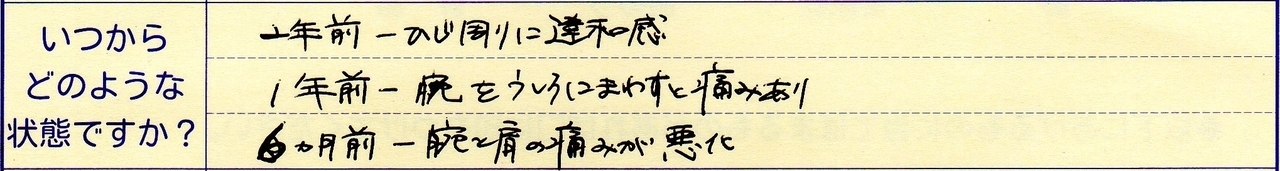 いつから
どのような
状態ですか？
2年前ーひじ周りに違和感
1年前ー腕をうしろにまわすと痛みあり
6カ月前ー腕と肩の痛みが悪化